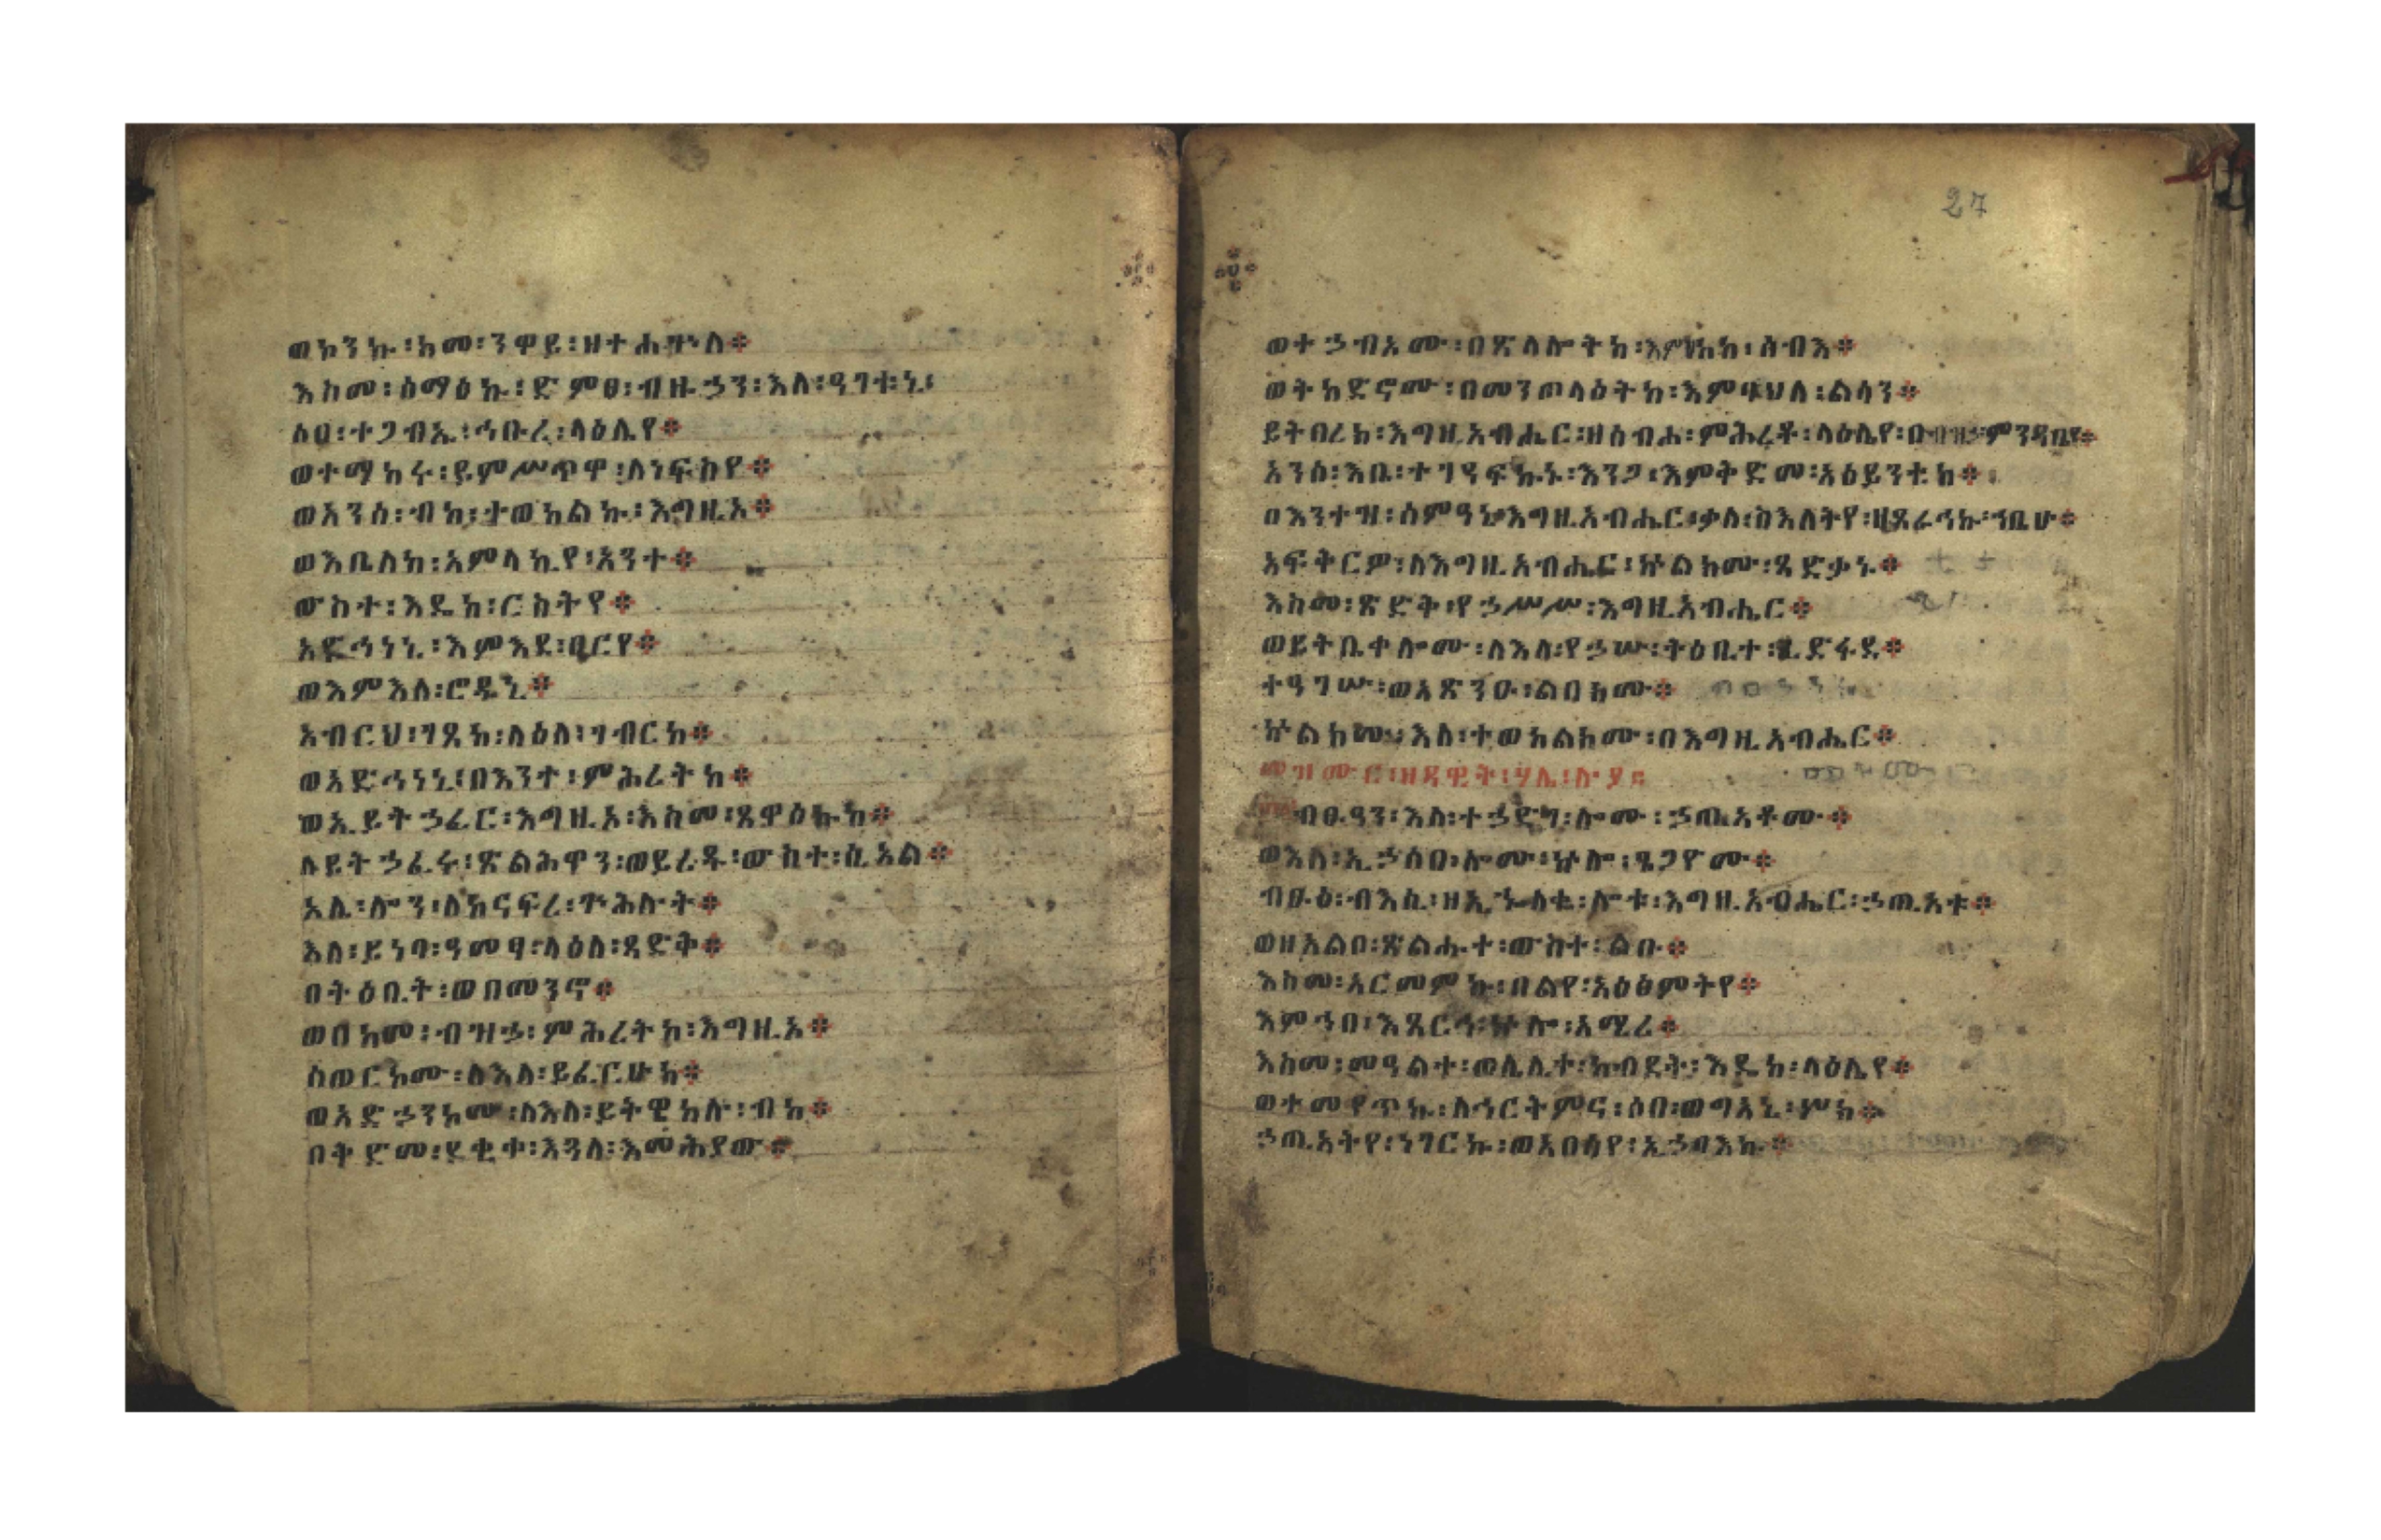 ወኮንኩ፡ከመ፡ንዋይ፡ዘተሐጕለ።
እስመ፡ሰማዕኩ፡ድምፀ፡ብዙኃን፡እለ፡ዓገቱኒ፡
ሶበ፡ተጋብኡ፡ኅቡረ፡ላዕሌየ።
ወተማከሩ፡ይምሥጥዋ፡ለነፍስየ።
ወአንሰ፡ብከ፡ተወከልኩ፡እግዚኦ።
ወእቤለከ፡አምላኪየ፡አንተ።
ውስተ፡እዴከ፡ርስትየ።
አድኅነኒ፡እምእደ፡ፀርየ።
ወእምእለ፡ሮዱኒ።
አብርህ፡ገጸከ፡ላዕለ፡ገብርከ።
ወአድኅነኒ፡በእንተ፡ምሕረትከ።
ወኢይትኃፈር፡እግዚኦ፡እስመ፡ጸዋዕኩከ።
ለይትኃፈሩ፡ጽልሕዋን፡ወይረዱ፡ውስተ፡ሲኦል።
አሌ፡ሎን፡ለከናፍረ፡ጕሕሉት።
እለ፡ይነባ፡ዓመፃ፡ላዕለ፡ጻድቅ።
በትዕቢት፡ወበመንኖ።
ወበከመ፡ብዝኃ፡ምሕረትከ፡እግዚኦ።
ሰወርኮሙ፡ለእለ፡ይፈርሁከ።
ወአድኃንኮሙ፡ለእለ፡ይትዌከሉ፡ብከ።
በቅድመ፡ደቂቀ፡እጓለ፡እመሕያው።
27
ወተኃብኦሙ፡በጽላሎትከ፡እምሀከከ፡ሰብእ።
ወትከድኖሙ፡በመንጦላዕትከ፡እምባህለ፡ልሳን።
ይትባረክ፡እግዚአብሔር፡ዘሰብሐ፡ምሕረቶ፡ላዕሌየ፡በብዝኃ፡ምንዳቤየ።
አንሰ፡እቤ፡ተገደፍኩኑ፡እንጋ፡እምቅድመ፡አዕይንቲከ።
በእንተዝ፡ሰምዓኒ፡እግዚአብሔር፡ቃለ፡ስእለትየ፡ዘጸራኅኩ፡ኀቤሁ።
አፍቅርዎ፡ለእግዚአብሔር፡ኵልክሙ፡ጻድቃኑ።
እስመ፡ጽድቅ፡የኃሥሥ፡እግዚአብሔር።
ወይትቤቀሎሙ፡ለእለ፡የኃሡ፡ትዕቢተ፡ፈድፋደ።
ተዓገሡ፡ወአጽንዑ፡ልበክሙ።
ኵልክሙ፡እለ፡ተወከልክሙ፡በእግዚአብሔር።
መዝሙር፡ዘዳዊት፡ሃሌ፡ሉያ።
ብፁዓን፡እለ፡ተኃድገ፡ሎሙ፡ኃጢአቶሙ።
ወእለ፡ኢኃሰበ፡ሎሙ፡ኵሎ፡ጌጋዮሙ።
ብፁዕ፡ብእሲ፡ዘኢኈለቈ፡ሎቱ፡እግዚአብሔር፡ኃጢአቱ።
ወዘአልቦ፡ጽልሑተ፡ውስተ፡ልቡ።
እስመ፡አርመምኩ፡በልየ፡አዕፅምትየ።
እምኀበ፡እጸርኅ፡ኵሎ፡አሚረ።
እስመ፡መዓልተ፡ወሌሊተ፡ከብደት፡እዴከ፡ላዕሌየ።
ወተመየጥኩ፡ለኅርትምና፡ሶበ፡ወግአኒ፡ሦክ።
ኃጢአትየ፡ነገርኩ፡ወአበሳየ፡ኢኃባእኩ።